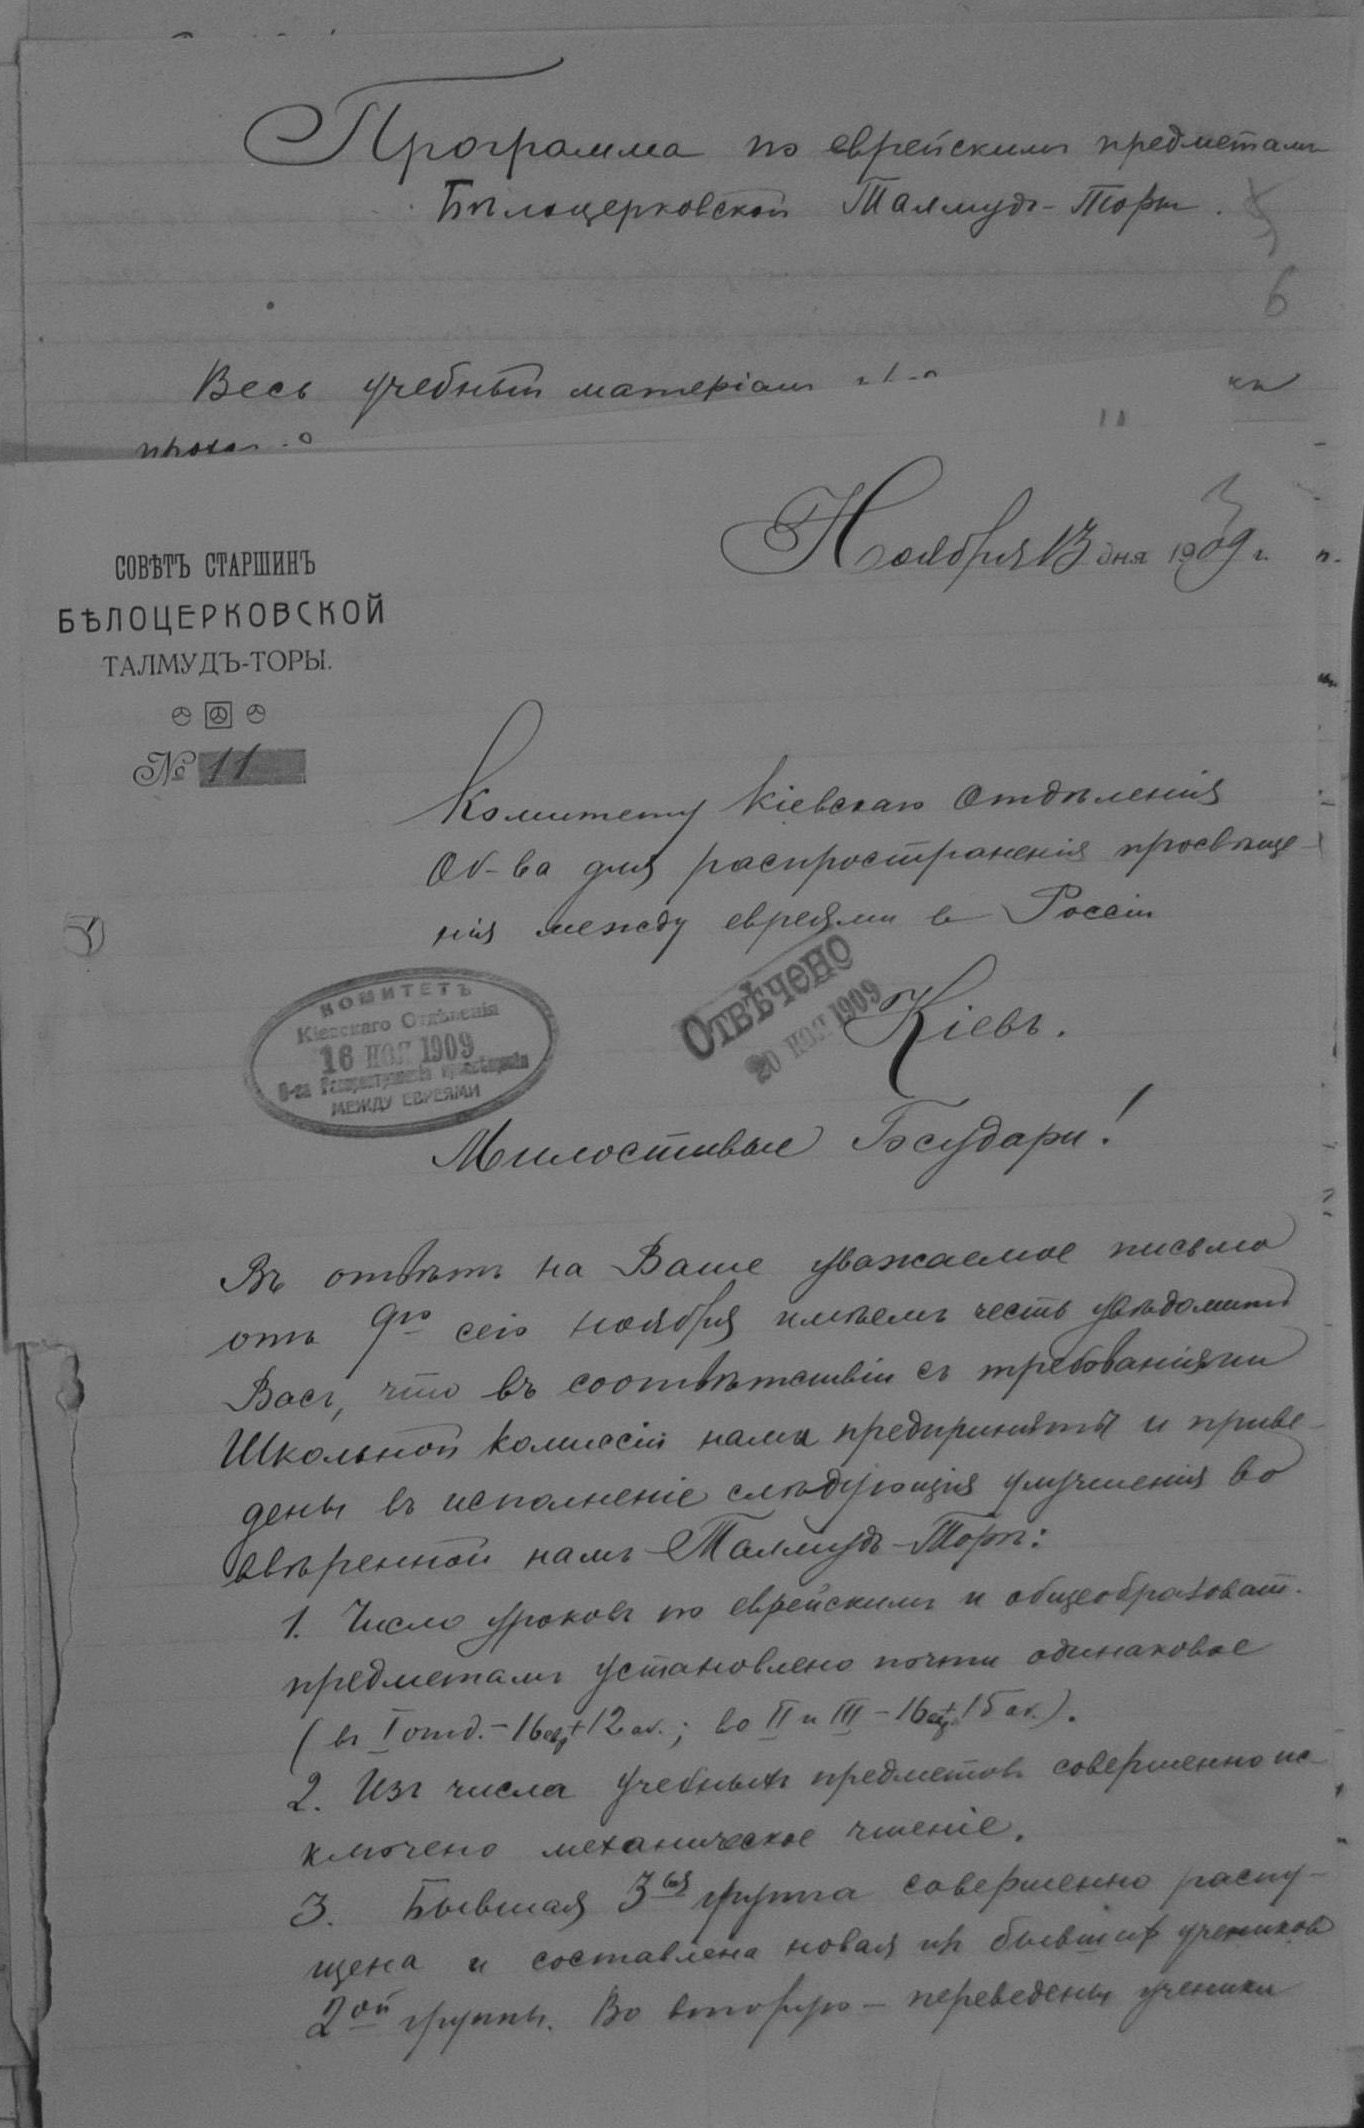 Программа по еврейскимъ предметамъ
Бѣлоцерковской Талмудъ-Торы.
6
Весь учебный матеріалъ
Ноября 13 дня 1909 г.
СОВѢТЪ СТАРШИНЪ
БѢЛОЦЕРКОВСКОЙ
ТАЛМУДЪ-ТОРЫ.
№ 11
Комитету Кіевскаго Отдѣленія
Об-ва для распространенія просвѣще-
нія между евреями в Россіи
КОМИТЕТЪ
Кіевскаго Отдѣленія
16 НОЯ 1909
О-ва Распространенія просвѣщенія
МЕЖДУ ЕВРЕЯМИ
ОТВѢЧЕНО
20 НОЯ 1909
Кіевъ.
Милостивые Государи!
Въ отвѣтъ на Ваше уважаемое письмо
отъ 9го сего ноября имѣемъ честь увѣдомить
Васъ, что въ соотвѣтствіи съ требованіями
Школьной Комиссіи нами предприняты и приве-
дены въ исполненіе слѣдующія улучшенія во
ввѣренной намъ Талмудъ-Торѣ:
1. Число уроковъ по еврейскимъ и общеобразоват.
предметамъ установлено почти одинаковое
(въ I отд. - 16 евр + 12 об.; во II и III - 16 евр + 15 об.).
2. Изъ числа учебныхъ предметовъ совершенно ис-
ключено механическое чтеніе.
3. Бывшая 3ья группа совершенно распу-
щена и составлена новая изъ бывшихъ учениковъ
2ой группы. Во вторую - переведены ученики